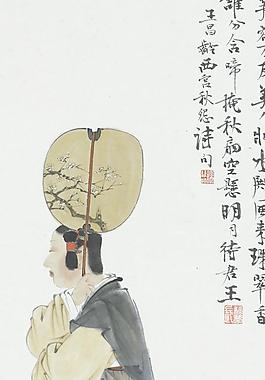 芙蓉不及美人妝水殿風來珠翠香
誰分含啼掩秋扇空懸明月待君王
王昌齡西宮秋怨詩句